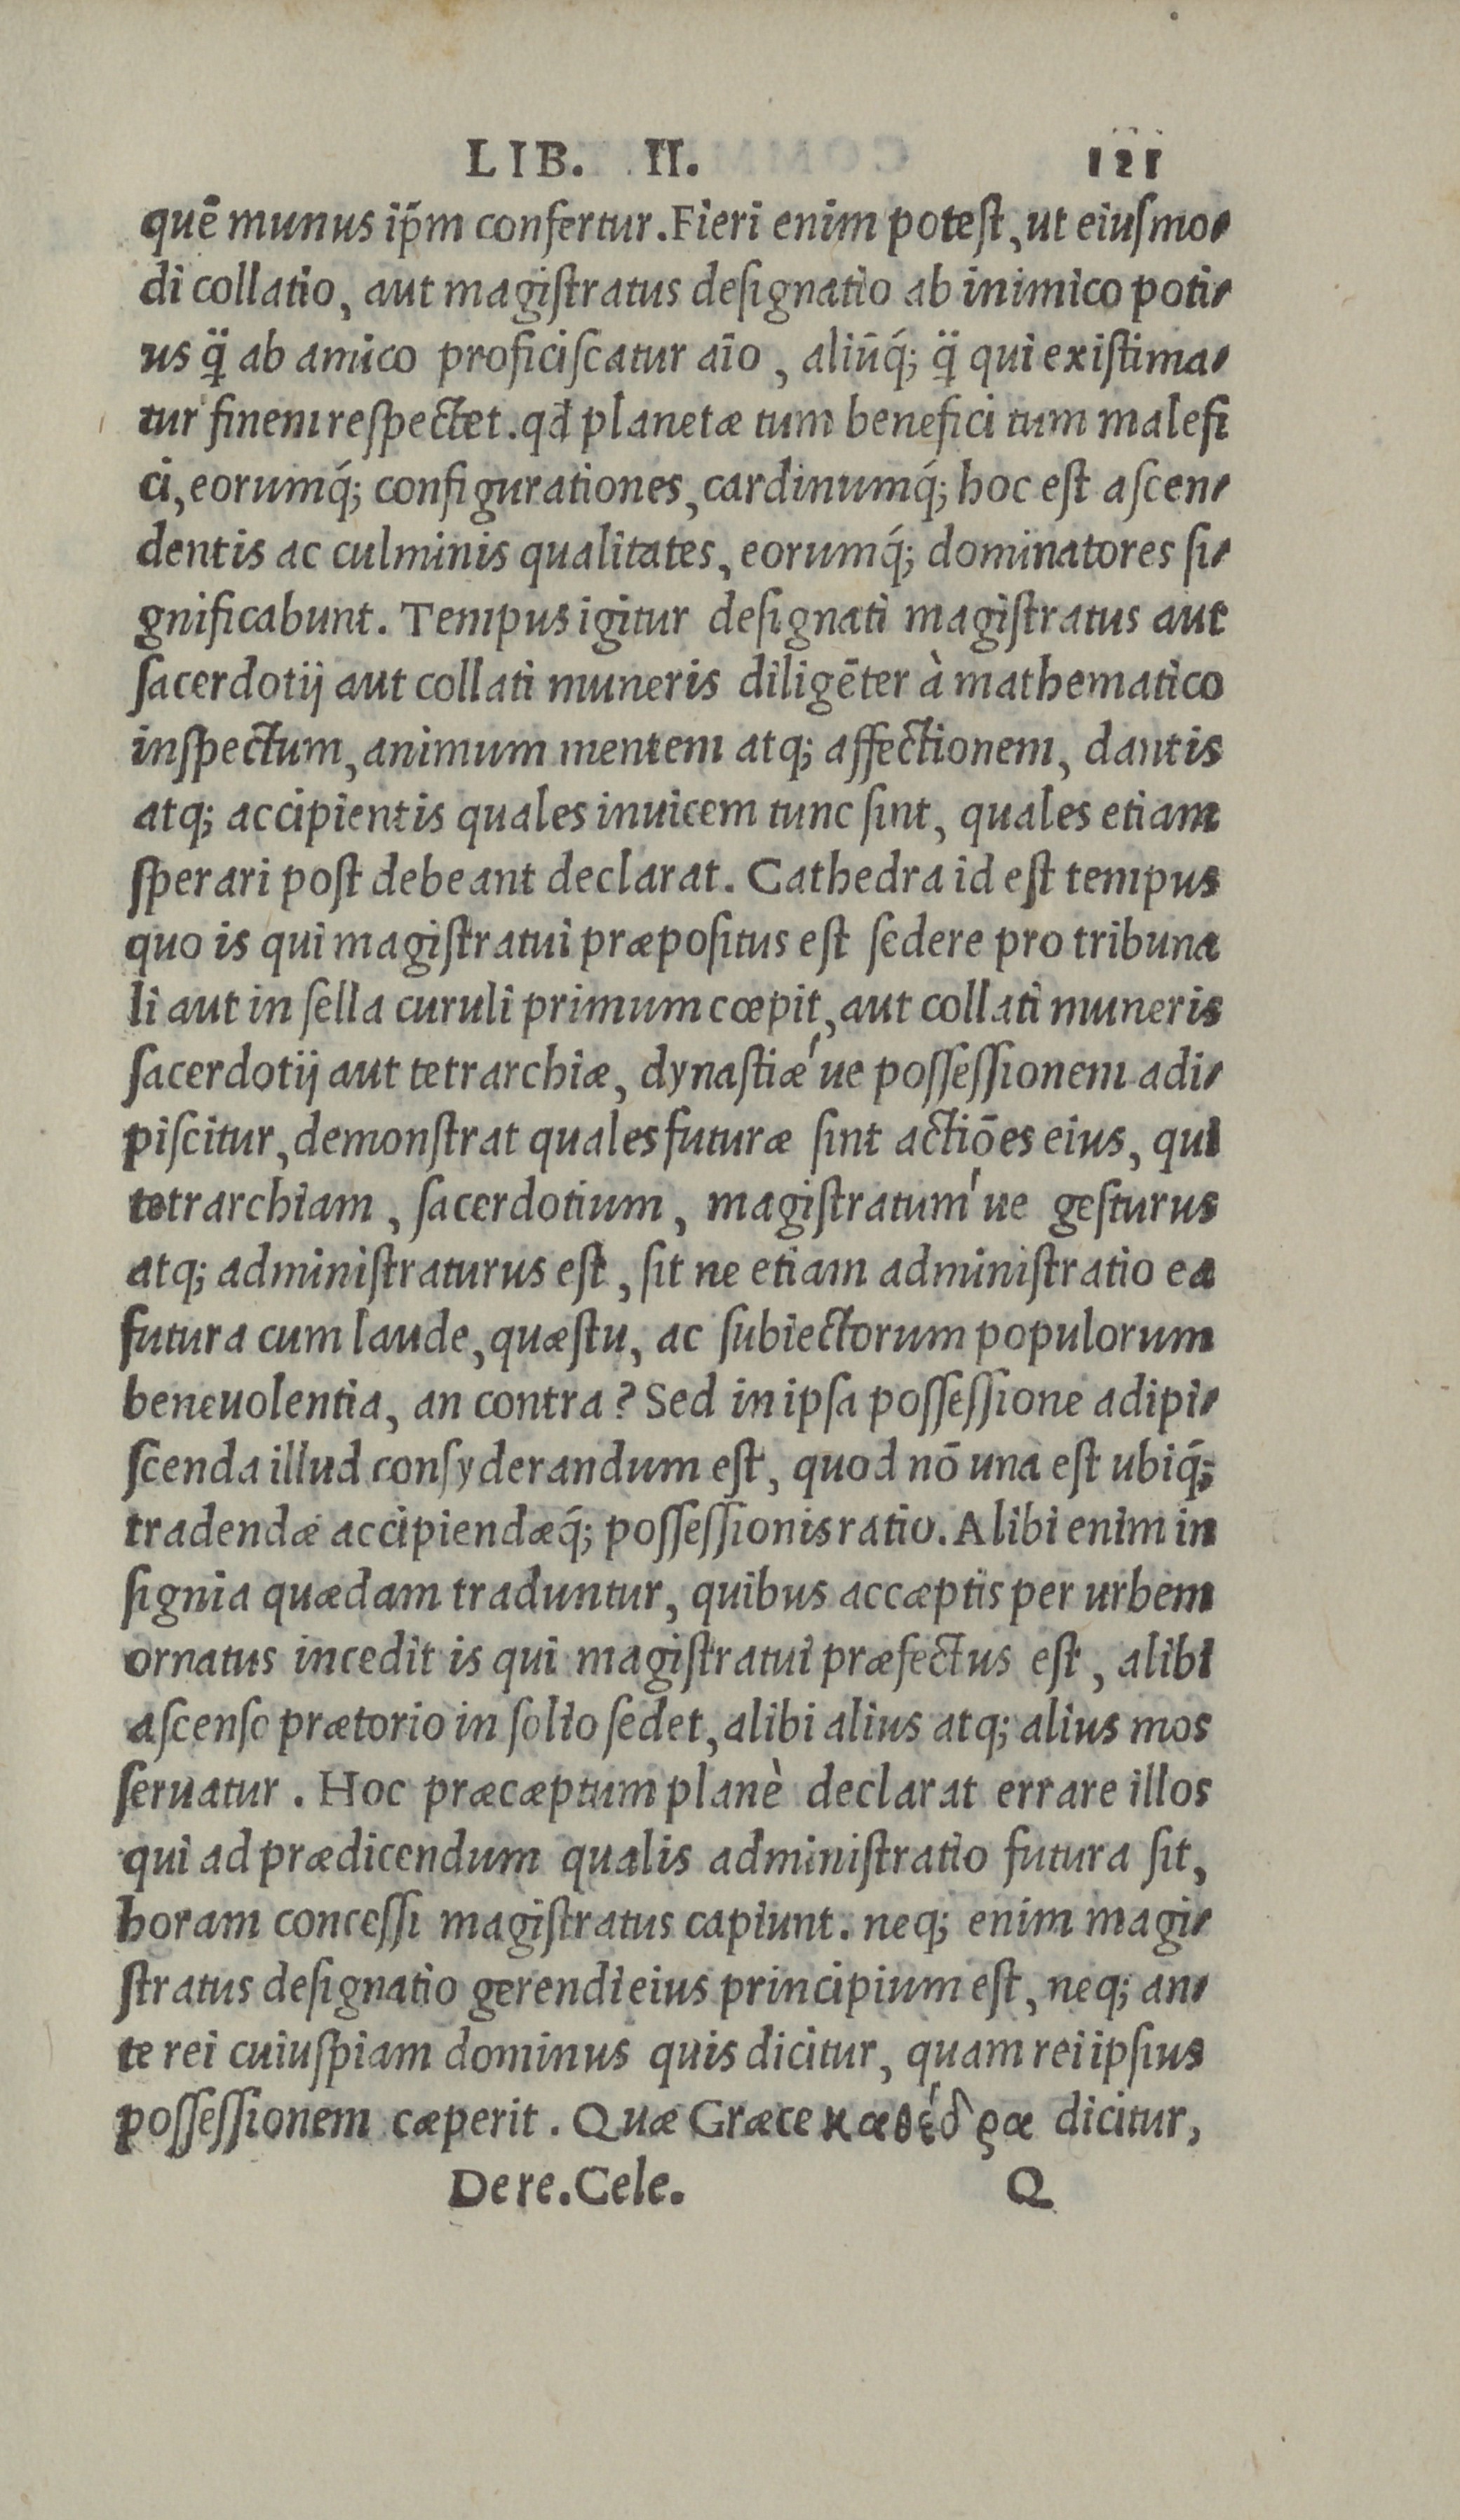 LIB. II. 121
quē munus ip̄m confertur. Fieri enim potest, ut eiuſmo-
di collatio, aut magiſtratus deſignatio ab inimico poti-
us q̈ ab amico proficiſcatur aīo, aliūq́; q̈ qui exiſtima-
tur finem reſpectet. qđ planetæ tum benefici tum malefi
ci, eorumq́; configurationes, cardinumq́; hoc eſt aſcen-
dentis ac culminis qualitates, eorumq́; dominatores ſi-
gnificabunt. Tempus igitur deſignati magiſtratus aut
ſacerdotij aut collati muneris diligēter à mathematico
inſpectum, animum mentem atq; affectionem, dantis
atq; accipientis quales inuicem tunc ſint, quales etiam
ſperari poſt debeant declarat. Cathedra id eſt tempus
quo is qui magiſtratui præpoſitus eſt ſedere pro tribuna
li aut in ſella curuli primum cœpit, aut collati muneris
ſacerdotij aut tetrarchiæ, dynaſtiæ'ue poſſeſſionem adi-
piſcitur, demonſtrat quales futuræ ſint actiōes eius, qui
tetrarchiam, ſacerdotium, magiſtratum'ue geſturus
atq; adminiſtraturus eſt, ſit ne etiam adminiſtratio ea
futura cum laude, quæſtu, ac ſubiectorum populorum
beneuolentia, an contra? Sed in ipſa poſſeſſione adipi-
ſcenda illud conſyderandum eſt, quod nō una eſt ubiq́;
tradendæ accipiendæq́; poſſeſſionis ratio. Alibi enim in
ſignia quædam traduntur, quibus accæptis per urbem
ornatus incedit is qui magiſtratui præfectus eſt, alibi
aſcenſo prætorio in ſolio ſedet, alibi alius atq; alius mos
ſeruatur. Hoc præcæptum planè declarat errare illos
qui ad prædicendum qualis adminiſtratio futura ſit,
horam conceſſi magiſtratus capiunt. neq; enim magi-
ſtratus deſignatio gerendi eius principium eſt, neq; an-
te rei cuiuſpiam dominus quis dicitur, quam rei ipſius
poſſeſſionem cæperit. Quæ Græce καθέδρα dicitur,
De re. Cele. Q